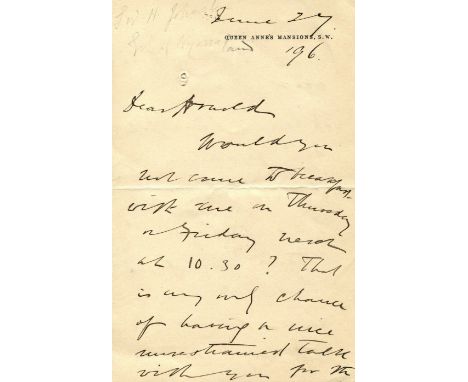 Sir H. Johnston
June 27
QUEEN ANNE'S MANSIONS, S.W.
196.
Dear
Would you
not come to breakfast
with me on Thursday
or Friday next
at 10.30? That
is my only chance
of having a nice
unrestrained talk
with you for the